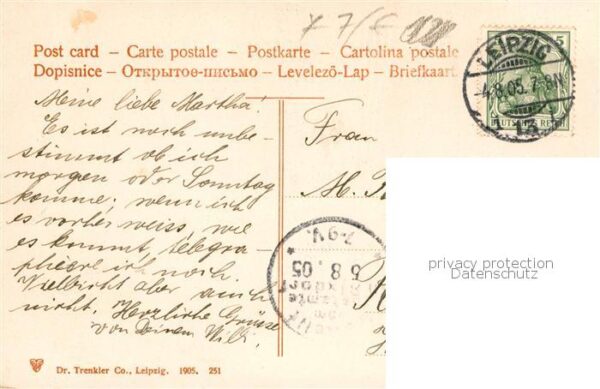 Post card – Carte postale – Postkarte – Cartolina postale
Dopisnice – Открытое-письмо – Levelező-Lap – Briefkaart
LEIPZIG
4.8.05. 7-8N
13
5
DEUTSCHES REICH
Meine liebe Martha!
Es ist noch unbe-
stimmt ob ich
morgen oder Sonntag
komme; wenn ich
es vorher weiss, wie
es kommt, telegra-
phiere ich noch.
Vielleicht aber auch
nicht. Herzliche Grüsse
von Deinem Willi.
Frau
M.
7-9V.
5 8.05
privacy protection
Datenschutz
Dr. Trenkler Co., Leipzig. 1905. 251